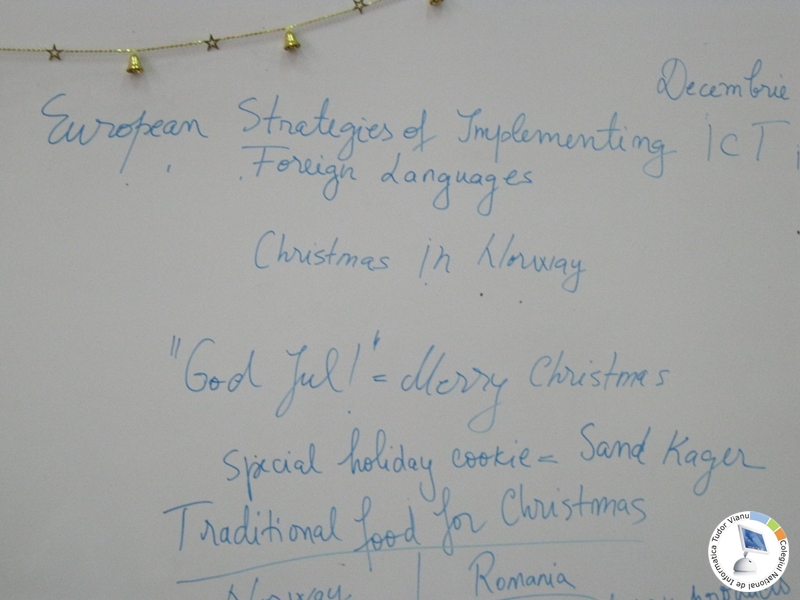 Decembrie
European Strategies of Implementing ICT
Foreign Languages
Christmas in Norway
"God Jul!" = Merry Christmas
Special holiday cookie = Sand Kager
Traditional food for Christmas
Norway | Romania
Colegiul National de Informatica Tudor Vianu